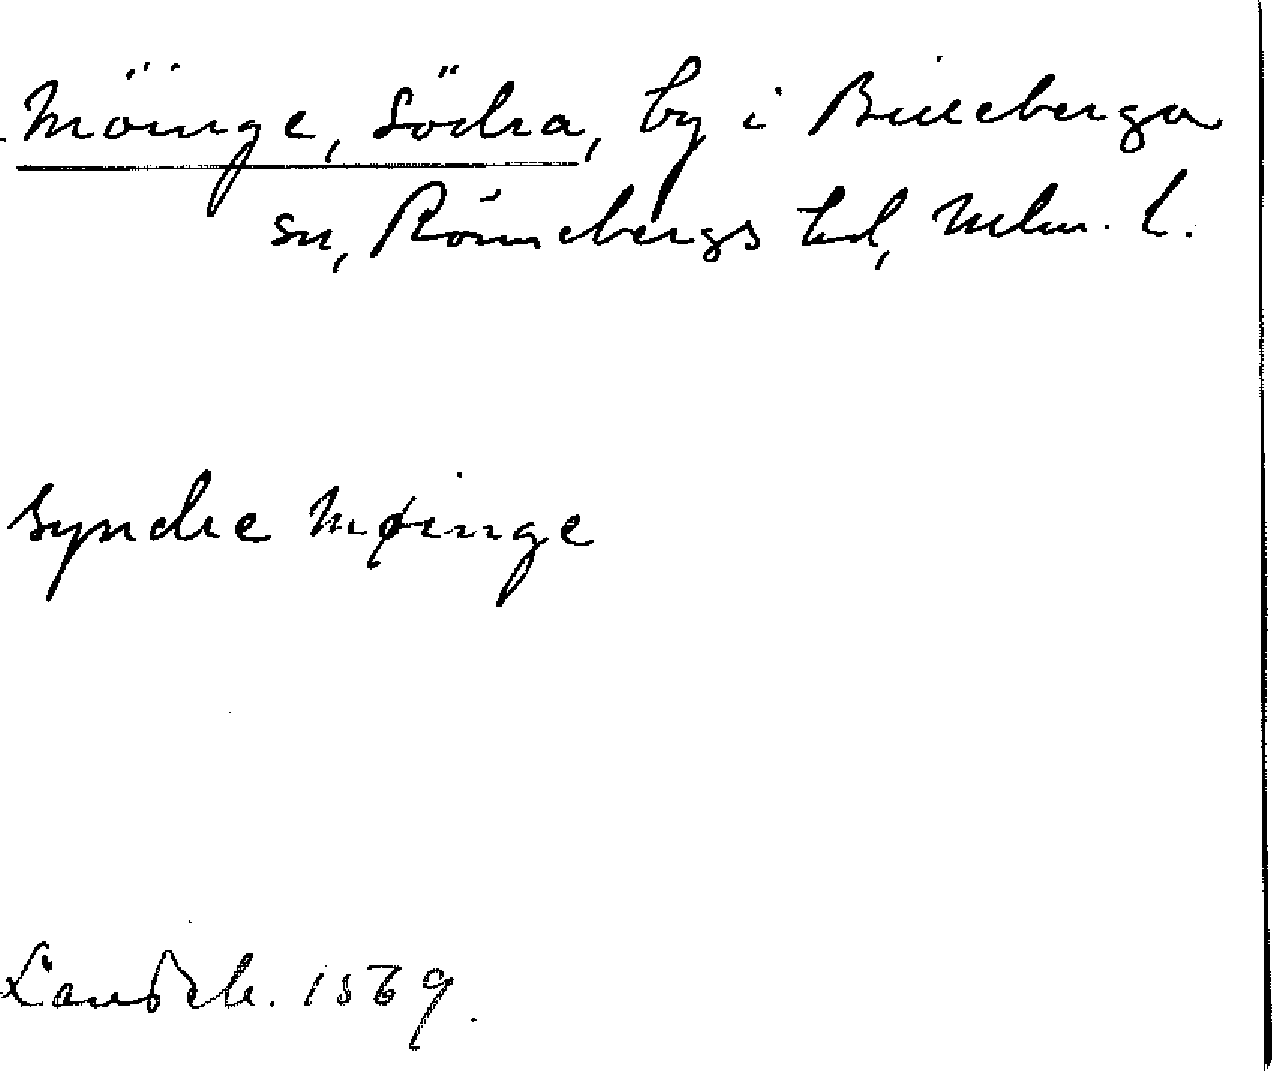 Möinge, Södra, by i Billeberga
sn, Rönnebergs hd, Mlm. l.
Syndre Møinge
Landsb. 1569.